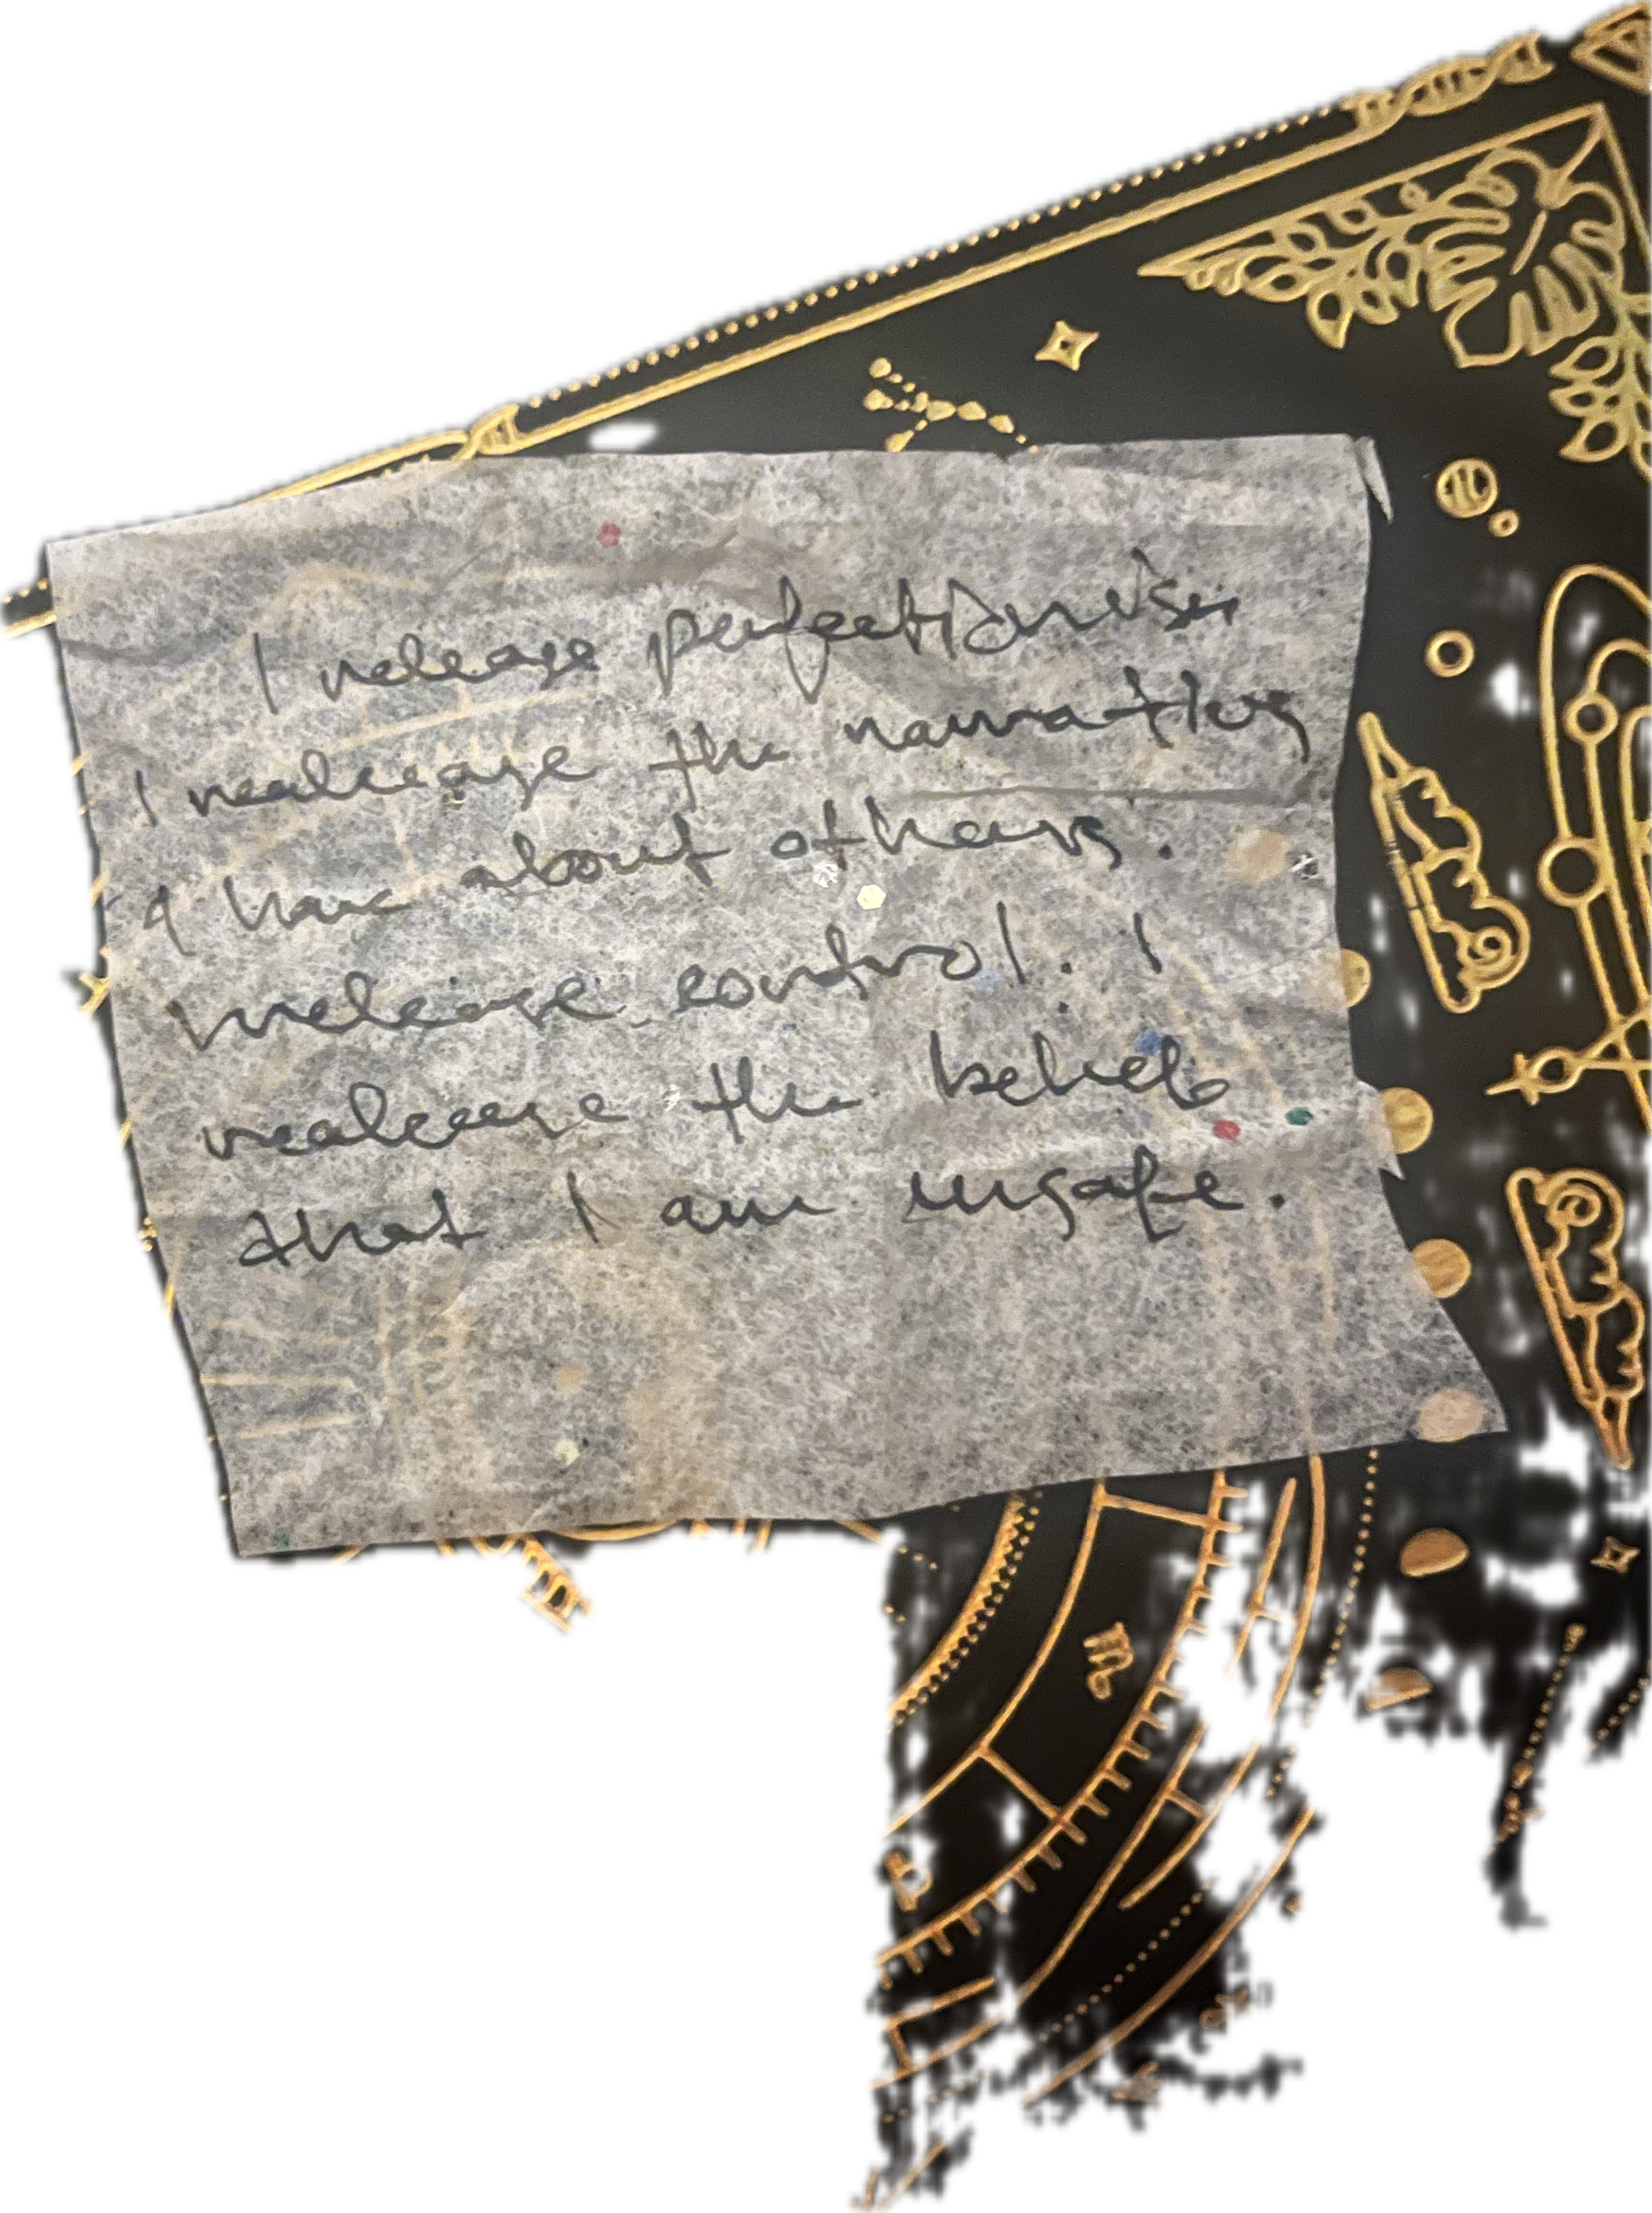 I release perfectionism
I realease the narratives
I have about others.
release control. I
realease the beliefs
that I am unsafe.